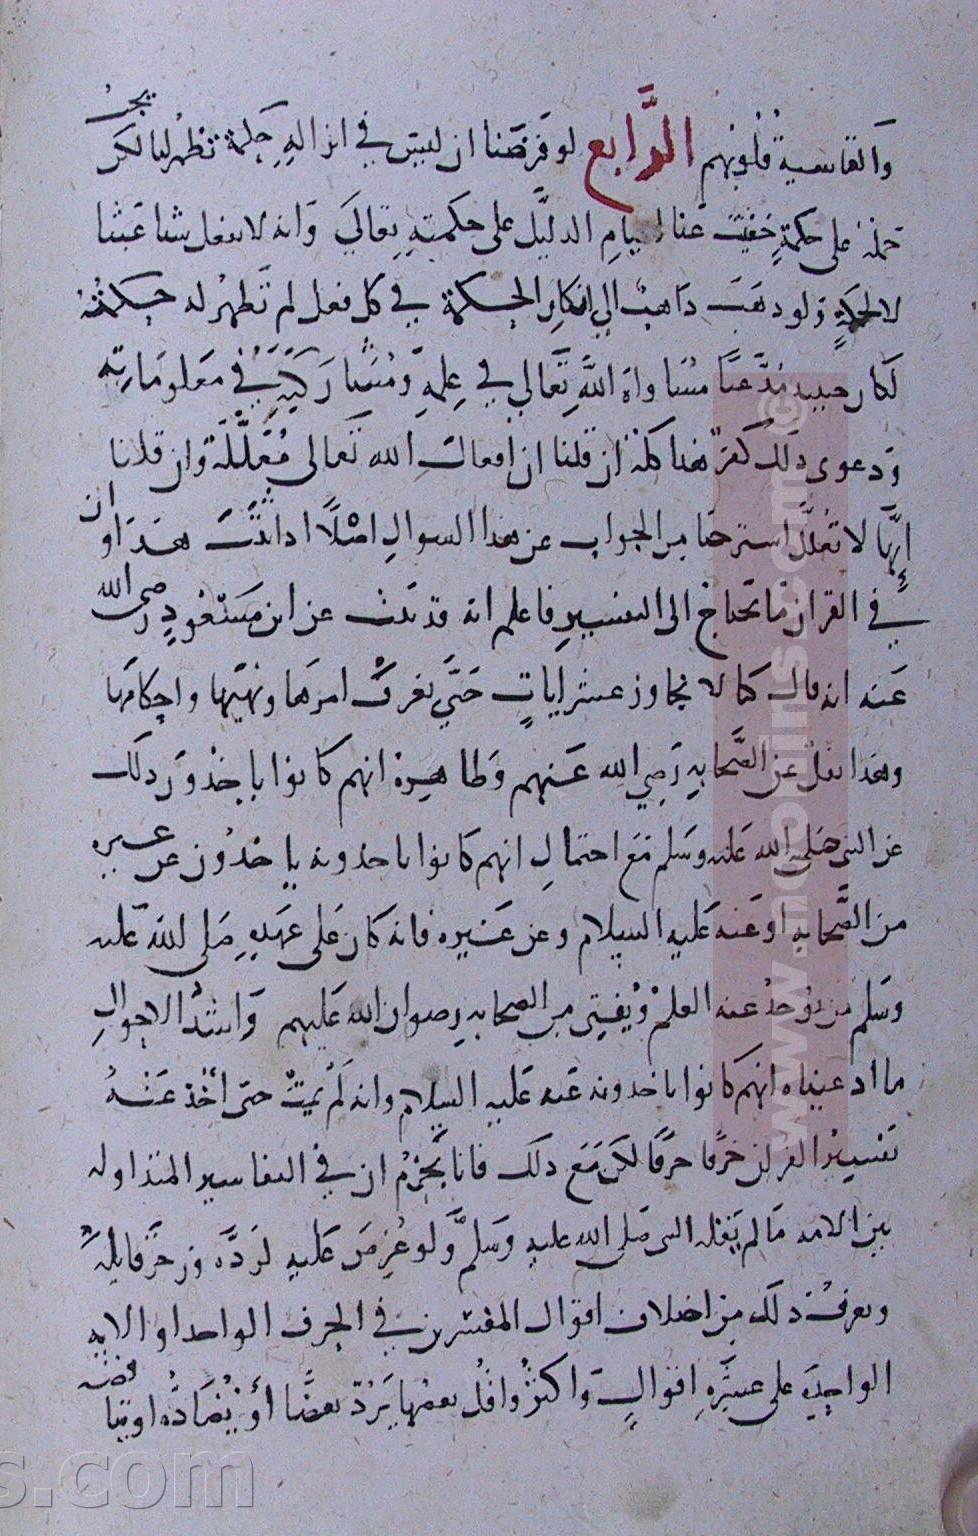 والقاسية قلوبهم الرابع لو فرضنا ان ليس في انزاله حكمة تظهر لنا لكن يجب
حمله على حكمة خفيت عنا لقيام الدليل على حكمته تعالى وانه لا يفعل شيا عبثا
لا لحكمة ولو ذهب ذاهب الى انكار الحكمة في كل فعل لم تظهر له حكمته
لكان حينيذ مدعيا مساواة الله تعالى في علمه ومشاركته في معلوماته
ودعوى ذلك كفر هذا كله ان قلنا ان افعال الله تعالى معللة وان قلنا
إنها لا تعلل استرحنا من الجواب عن هذا السوال اصلا اذا ثبت هذا وان
في القران ما يحتاج الى التفسير فاعلم انه قد ثبت عن ابن مسعود رضي الله
عنه انه قال كنا لا نجاوز عشر ايات حتى نعرف امرها ونهيها واحكامها
وهذا نقل عن الصحابة رضي الله عنهم وظاهره انهم كانوا ياخذون ذلك
عن النبي صلى الله عليه وسلم مع احتمال انهم كانوا ياخذونه ياخذون عن غيره
من الصحابة او عنه عليه السلام وعن غيره فانه كان على عهده صلى الله عليه
وسلم من يوخذ عنه العلم ويفتي من الصحابة رضوان الله عليهم واشد الاحوال
ما ادعيناه انهم كانوا ياخذونه عنه عليه السلام وانه لم يمت حتى أخذ عنه
تفسير القران حرفا حرفا لكن مع ذلك فانا نجزم ان في التفاسير المتداولة
بين الامة ما لم يقله النبي صلى الله عليه وسلم ولو عرض عليه لرده وزجر قايله
ويعرف ذلك من اختلاف اقوال المفسرين في الحرف الواحد او الاية
الواحدة على عشرة اقوال واكثر واقل بعضها يرد بعضا أو يضاده او يناقضه
www.noojins.com ©
s.com